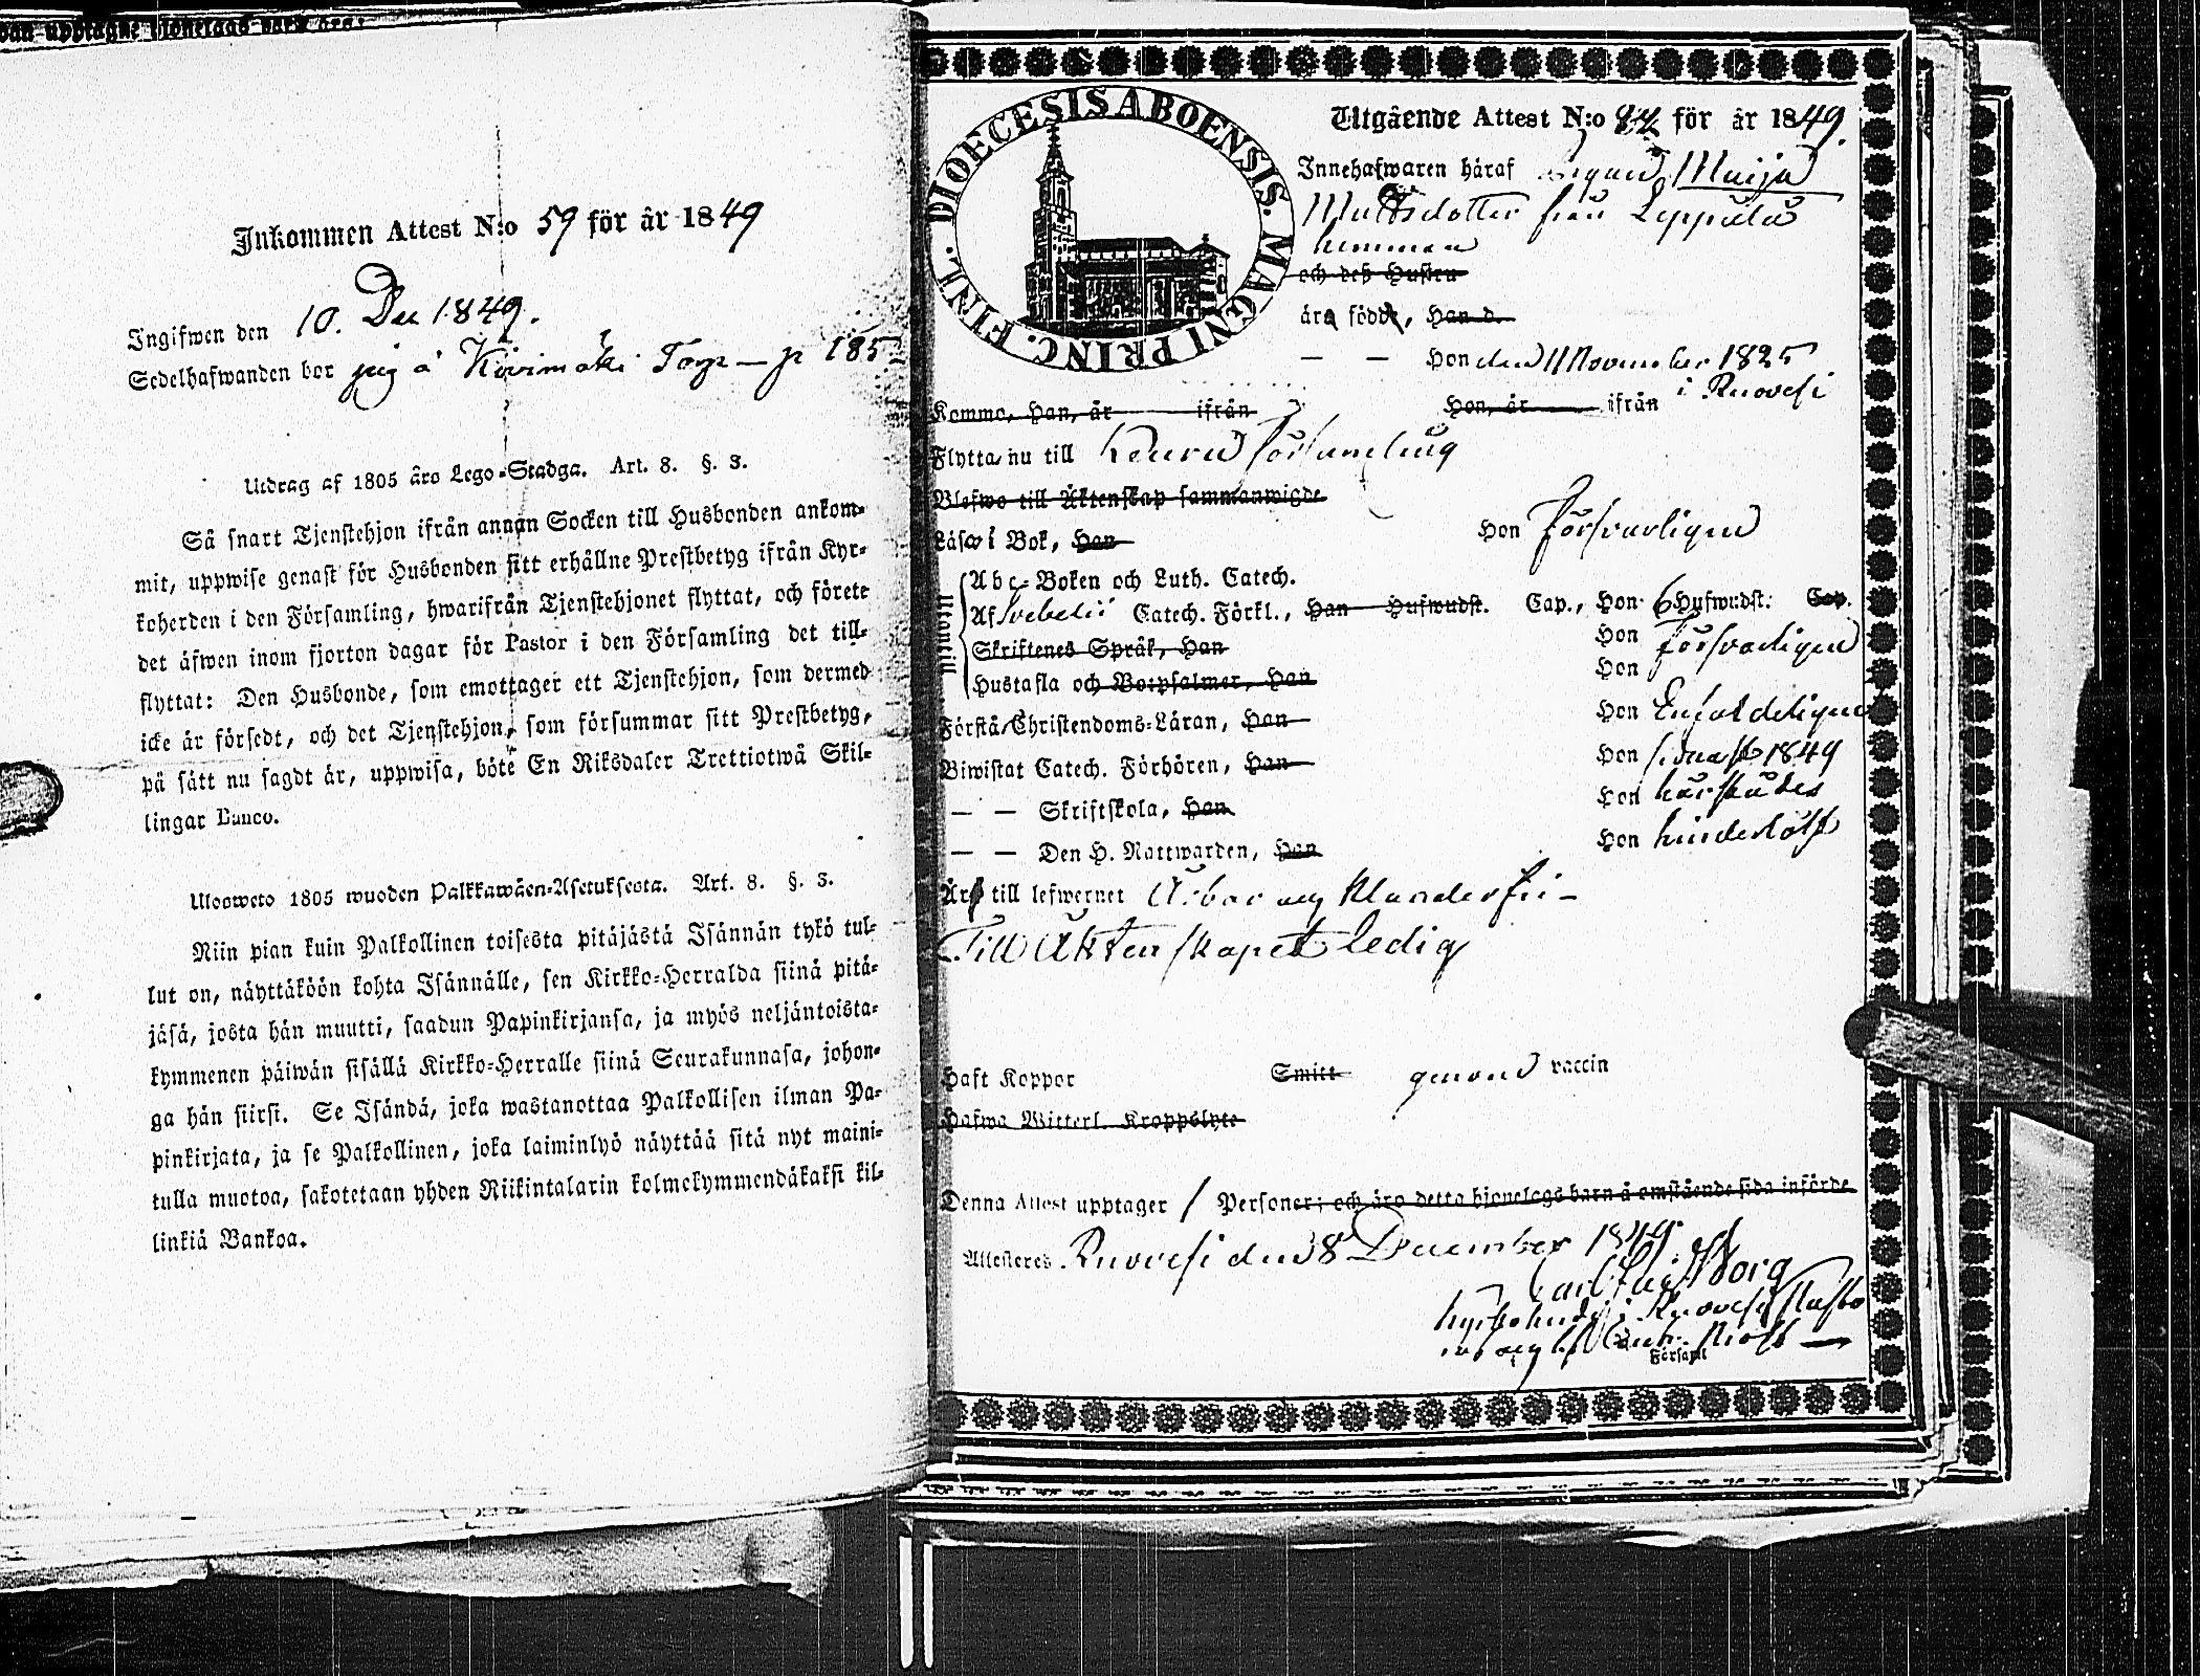 Inkommen Attest N:o 59 för år 1849
Ingifwen den 10. Dec 1849.
Sedelhafwanden bor sig å Kivimäki Torp – p 185
Utdrag af 1805 års Lego-Stadga. Art. 8. §. 3.
Så snart Tjenstehjon ifrån annan Socken till Husbonden ankom-
mit, uppwise genast för Husbonden sitt erhållne Prestbetyg ifrån Kyr-
koherden i den Församling, hwarifrån Tjenstehjonet flyttat, och förete
det äfwen inom fjorton dagar för Pastor i den Församling det till-
flyttat: Den Husbonde, som emottager ett Tjenstehjon, som dermed
icke är försedt, och det Tjenstehjon, som försummar sitt Prestbetyg,
på sätt nu sagdt är, uppwisa, böte En Riksdaler Trettiotwå Skil-
lingar Banco.
Ulosweto 1805 wuoden Palkkawäen-Asetuksesta. Art. 8. §. 3.
Niin pian kuin Palkollinen toisesta pitäjästä Isännän tykö tul-
lut on, näyttäköön kohta Isännälle, sen Kirkko-Herralda siinä pitä-
jäsä, josta hän muutti, saadun Papinkirjansa, ja myös neljäntoista-
kymmenen päiwän sisällä Kirkko-Herralle siinä Seurakunnasa, johon-
ga hän siirsi. Se Isändä, joka wastanottaa Palkollisen ilman Pa-
pinkirjata, ja se Palkollinen, joka laiminlyö näyttää sitä nyt maini-
tulla muotoa, sakotetaan yhden Riikintalarin kolmekymmendäkaksi kil-
linkiä Bankoa.
DIOECESIS ABOENSIS. MAGNI PRINC. FINL.
Utgående Attest N:o 84 för år 1849.
Innehafwaren häraf Pigan Maija
Mattsdotter från Leppälä
hemman
och deß Hustru
äro födde, Han d.
— — Hon den 11 November 1825
i Ruovesi
Komme, Han, år ifrån Hon, år ifrån
Flytta nu till Keuru församling
Blefwo till Äktenskap sammanwigde
Läsa i Bok, Han Hon Försvarligen
Utantill
Abc-Boken och Luth. Catech.
Af Svebelii Catech. Förkl., Han Hufwudst. Cap., Hon 6 Hufwudst. Cap.
Skriftenes Språk, Han Hon Försvarligen
Hustafla och Botpsalmer, Han Hon
Förstå Christendoms-Läran, Han Hon Enfaldeligen
Biwistat Catech. Förhören, Han Hon sednast 1849
— — Skriftskola, Han Hon härstädes
— — Den H. Nattwarden, Han Hon hinderlöst
Äro till lefwernet Ärbar och Klanderfri –
Till Äktenskapet ledig
Haft Koppor Smitt genom vaccin
Hafwa Witterl. Kroppslyte
Denna Attest upptager 1 Personer; och äro detta hjonelags barn å omstående sida införde
Attesteres. Ruovesi den 8 December 1849.
Borg
Kyrkoherde i Ruovesi
Församl